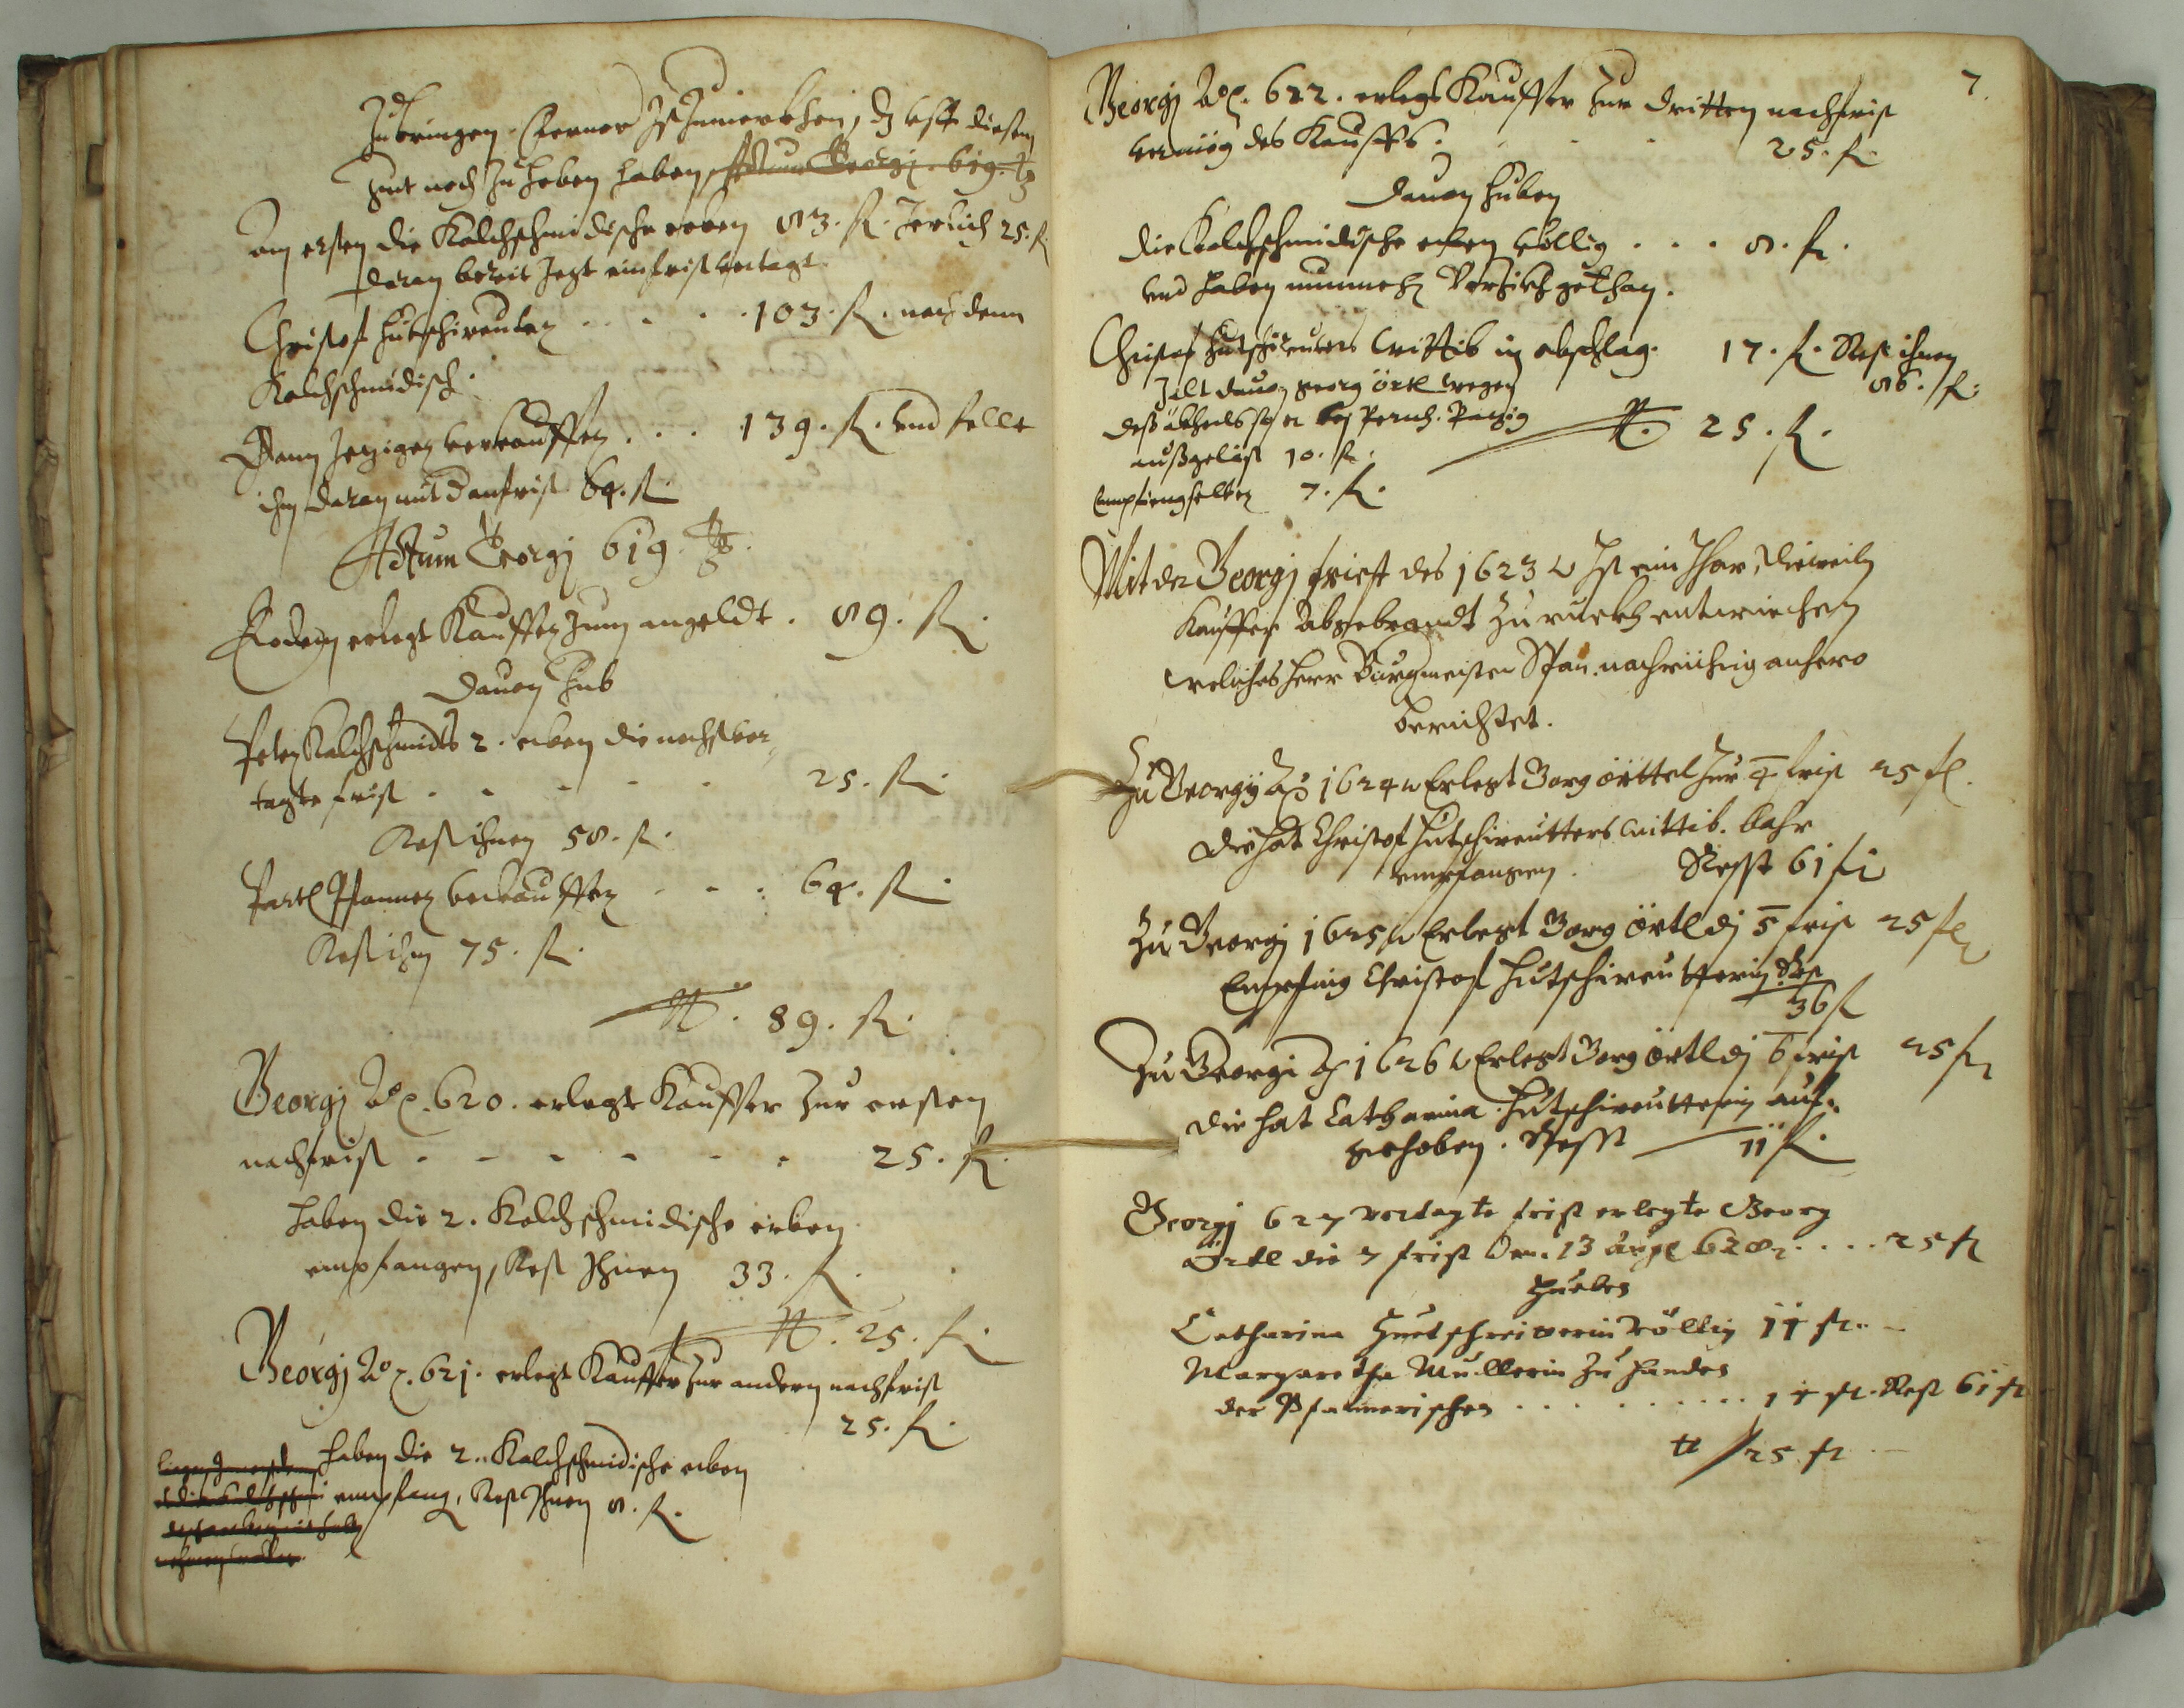 Zubringen. Ferner Ist Zumerkhen, dz auff diesem
gut noch zu heben haben, Actum Georgj. 619. Jar
Am ersten die Kalchschmidische erben 83. fl. Jerlich 25. fl.
daran bereit Jezt ein frist vertagt
Christof Hutschireuter . . . . 103. fl. nach dem
Kalchschmidisch.
Dann Jezigen verkauffer . . . 139. fl. und felle
ihm daran mit der anfrist 64. fl.
Actum Georgj 619.
Eodem erlegt Kauffer zum angeldt . 89. fl.
Davon hub
Peter Kalchschmidts 2. erben die nechst ver-
tagte frist . . . . . 25. fl.
Rest ihnen 58. fl.
Partl Pfanner verkauffer . . . 64. fl.
Rest ihm 75. fl.
89. fl.
Georgj Ao. 620. erlegt Kauffer zur ersten
nachfrist . . . . . . 25. fl.
haben die 2. Kalchschmidische erben
empfangen, Rest Ihnen 33. fl.
25. fl.
Georgj Ao. 621. erlegt Kauffer zur andern nachfrist
25. fl.
haben die 2. Kalchschmidische erben
empfang, Rest Ihnen 8. fl.
7.
Georgj Ao. 622. erlegt Kauffer zur dritten nachfrist
vermög des Kauffs . . . 25. fl.
Davon huben
die Kalchschmidische erben völlig . . . 8. fl.
und haben nunmehr Verzicht gethan.
Christof Hutschireuters Wittib in abschlag. 17. fl. Rest ihnen
86. fl.
Georg örtl wegen
außgelöst 10. fl.
Empfieng selber 7. fl.
25. fl.
Mit der Georgj friest des 1623 Ist ein Jhar, dieweiln
Kauffer Abgebrandt zuruckh entwiechen
welches Herr Burgmeister nachrichtig anhero
berichtet.
Zu Georgy Ao 1624 Erlegt Georg örttel zur 4 frist 25 fl.
die hat Christof Hutschireutters wittib. bahr
empfangen . Resst 61 fl
Zu Georgj 1625 Erlegt Georg örtl dj 5 frist 25 fl
Empfing Christof Hutschireutterin Rest
36 fl
Zu Georgi Ao 1626 Erlegt Georg örtl dj 6 frist 25 fl
die hat Catharina Hutschireutterin auf-
gehoben. Resst 11 fl.
Georgj 627 vertagte frist erlegte Georg
Örtl die 7 frist den 13 628 . . . . 25 fl
Huebes
Catharina Huetschreiterin völlig 11 fl.
Margaretha Mullerin zu handen
der Pfannerischen . . . . . . . . . 14 fl. Rest 61 fl
25 fl